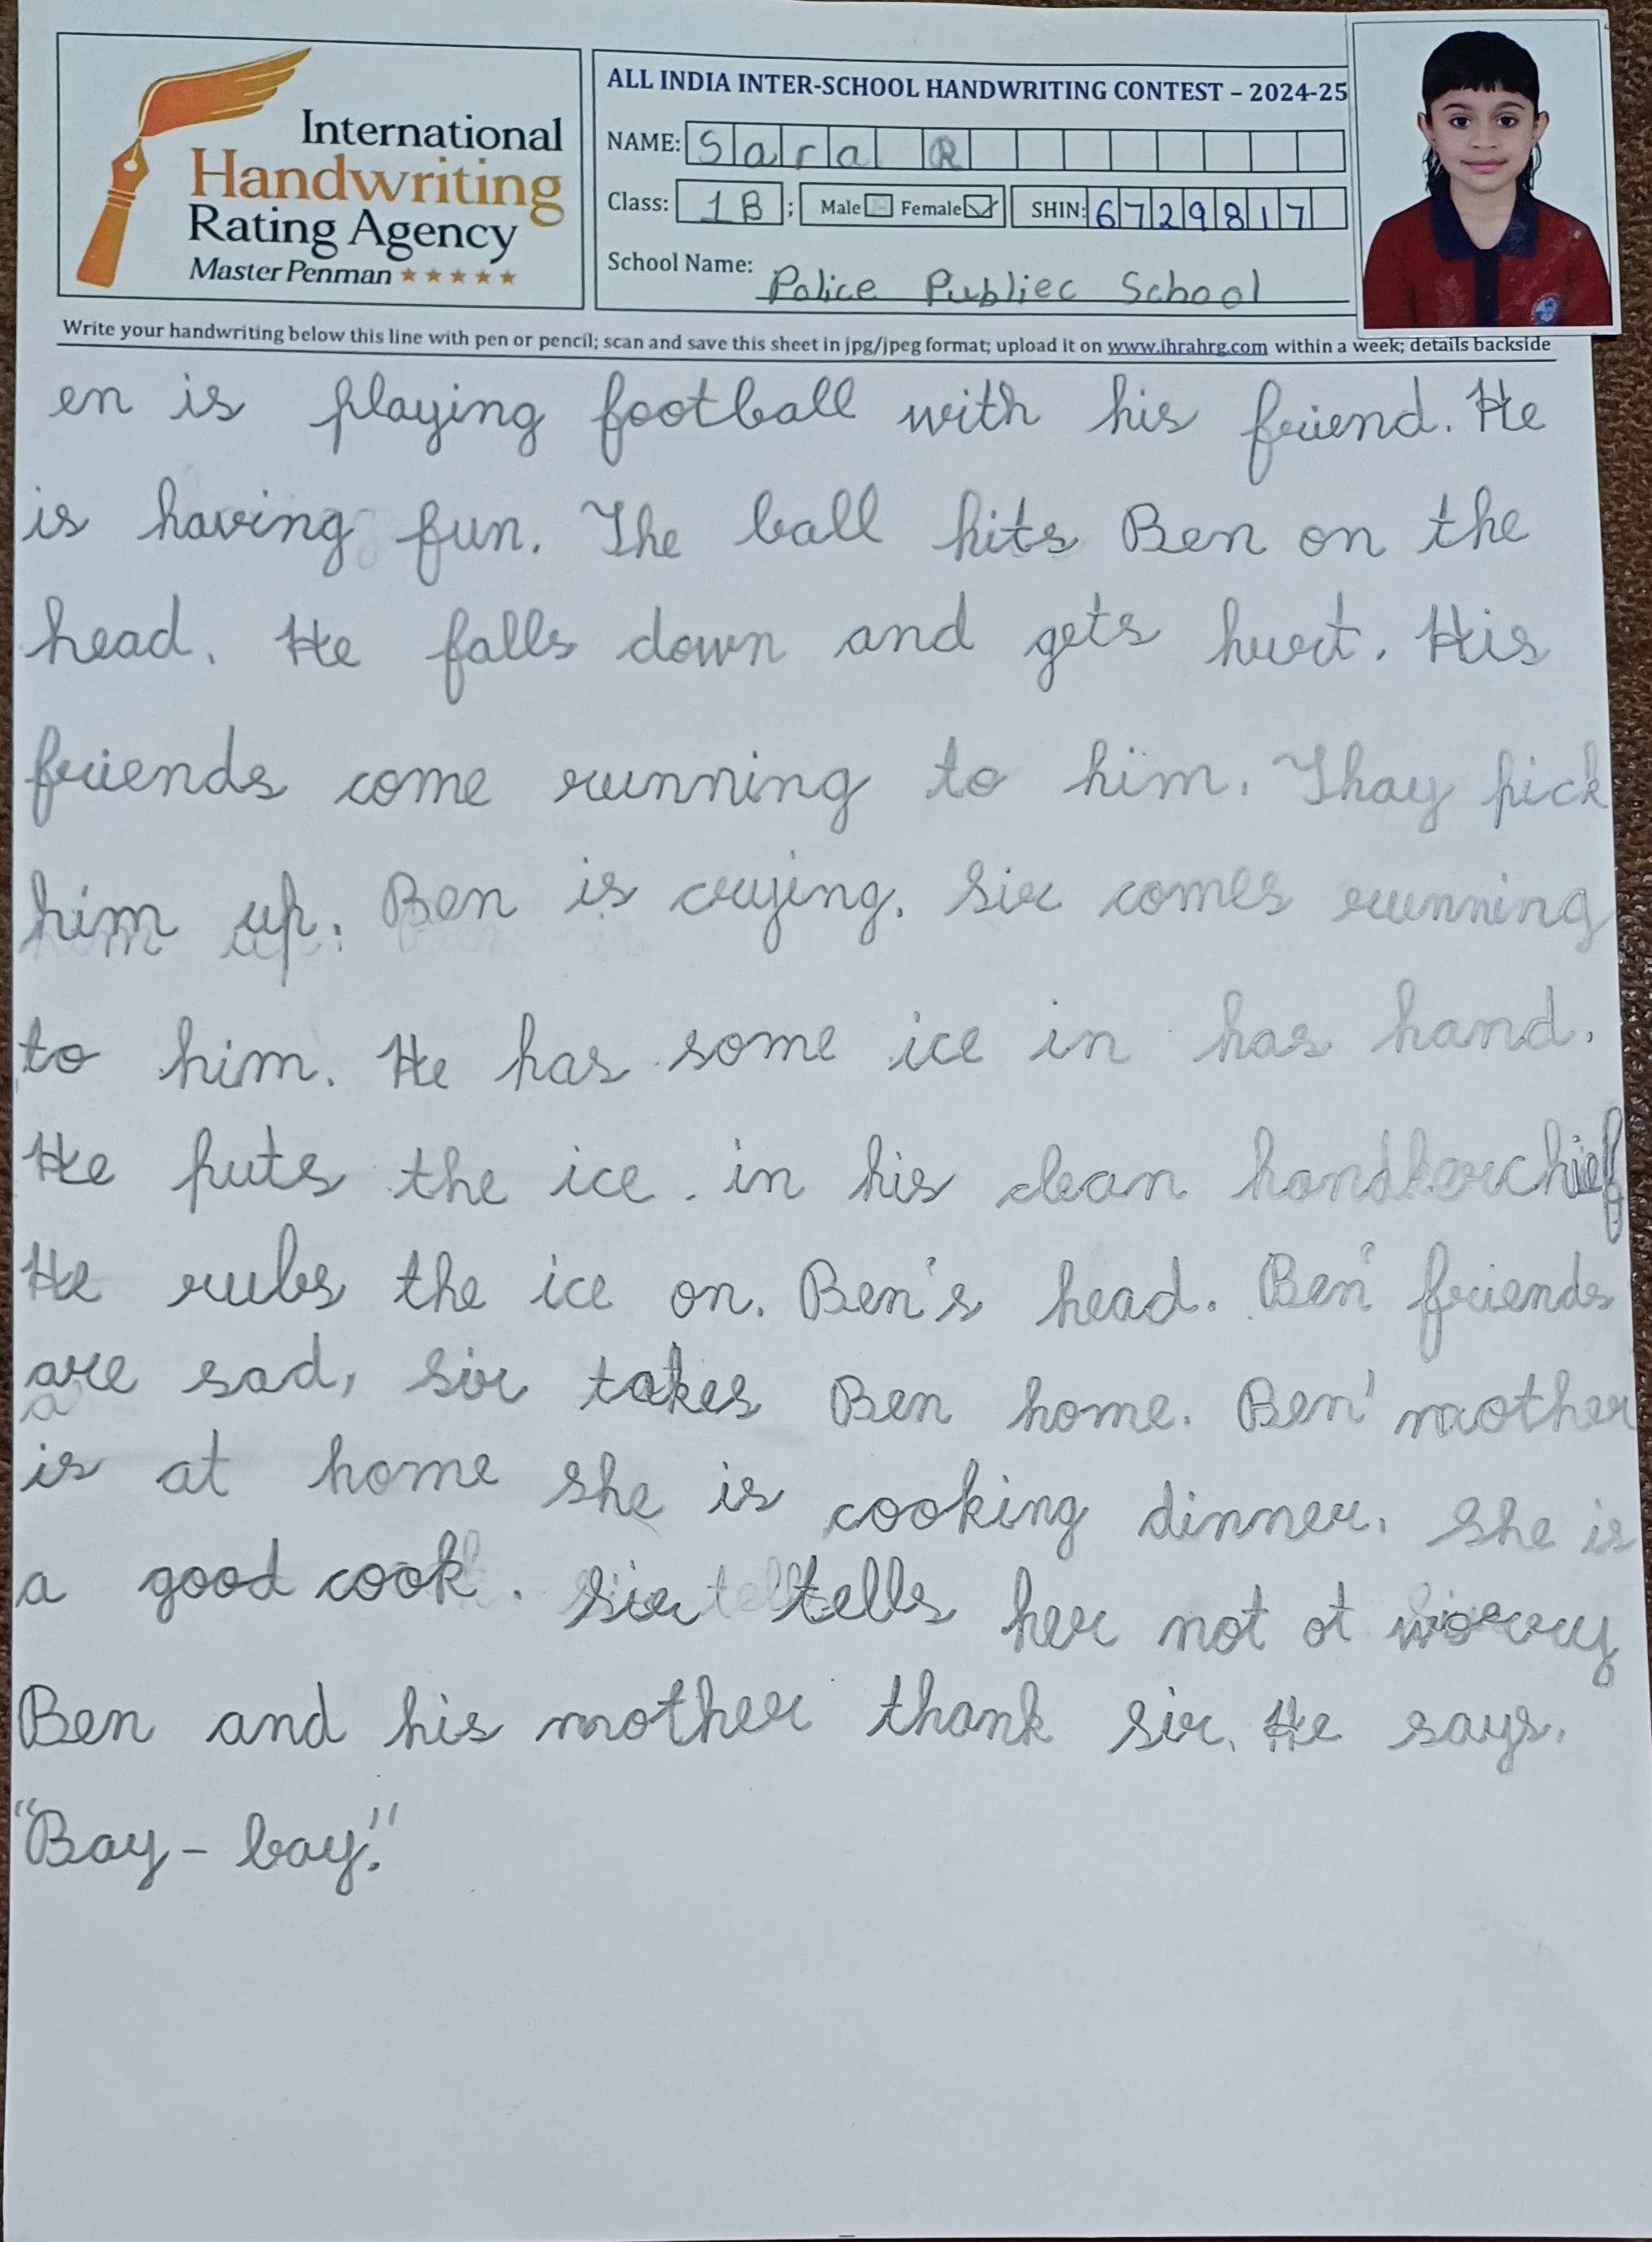 International
Handwriting
Rating Agency
Master Penman ★★★★★
ALL INDIA INTER-SCHOOL HANDWRITING CONTEST – 2024-25
NAME: Sara R
Class: 1B ; Male Female SHIN: 6729817
School Name: Police Publiec School
Write your handwriting below this line with pen or pencil; scan and save this sheet in jpg/jpeg format; upload it on www.ihrahrg.com within a week; details backside
en is playing football with his friend. He
is having fun. The ball hits Ben on the
head. He falls down and gets hurt. His
friends come running to him. Thay pick
him up. Ben is crying. Sir comes running
to him. He has some ice in has hand.
He puts the ice. in his clean handkerchief
He rubs the ice on. Ben's head. Ben' friends
are sad, sir takes Ben home. Ben' mother
is at home she is cooking dinner. She is
a good cook. Sir tells her not ot worry
Ben and his mother thank sir. He says.
"Bay - bay."